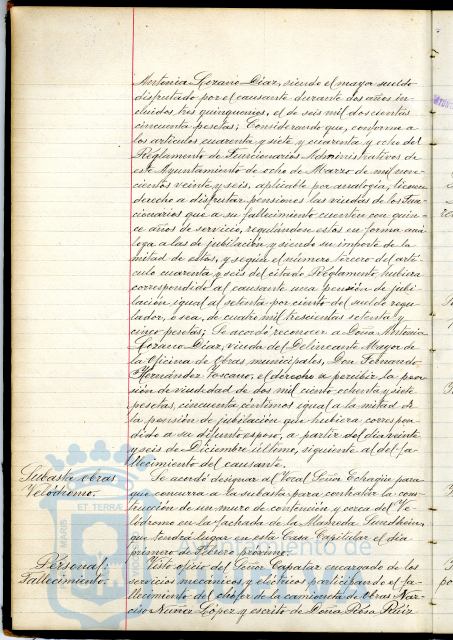 Antonia Lozano Díaz, siendo el mayor sueldo
disfrutado por el causante durante dos años in-
cluidos tres quinquenios, el de seis mil doscientas
cincuenta pesetas; Considerando que, conforme a
los artículos cuarenta y siete y cuarenta y ocho del
Reglamento de Funcionarios Administrativos de
este Ayuntamiento de ocho de Marzo de mil nove-
cientos veinte y seis, aplicable por analogía, tienen
derecho a disfrutar pensiones las viudas de los Fun-
cionarios que a su fallecimiento cuenten con quin-
ce años de servicio, regulándose estos en forma aná-
loga a las de jubilación y siendo su importe de la
mitad de estos, y según el número tercero del artí-
culo cuarenta y seis del citado Reglamento hubiera
correspondido al causante una pensión de jubi-
lación igual al setenta por ciento del sueldo regu-
lador, o sea, de cuatro mil trescientas setenta y
cinco pesetas; Se acordó reconocer a Doña Antonia
Lozano Díaz, viuda del Delineante Mayor de
la Oficina de Obras municipales, Don Fernando
Hernández Toscano, el derecho a percibir la pen-
sión de viudedad de dos mil ciento ochenta y siete
pesetas, cincuenta céntimos igual a la mitad de
la pensión de jubilación que hubiera correspon-
dido a su difunto esposo, a partir del día veinte
y seis de Diciembre último, siguiente al del fa-
llecimiento del causante.
Subasta obras
Velódromo.
Se acordó designar al Vocal Señor Echagüe para
que concurra a la subasta para contratar la cons-
trucción de un muro de contención y cerca del Ve-
lódromo en la fachada de la Alameda Sundheim,
que tendrá lugar en esta Casa Capitular el día
primero de Febrero próximo.
Personal:
Fallecimiento.
Visto oficio del Señor Capataz encargado de los
servicios mecánicos y eléctricos participando el fa-
llecimiento del chófer de la camioneta de Obras Nar-
ciso Núñez López y escrito de Doña Rosa Ruiz
ET TERRÆ
MARIS
Ayuntamiento de